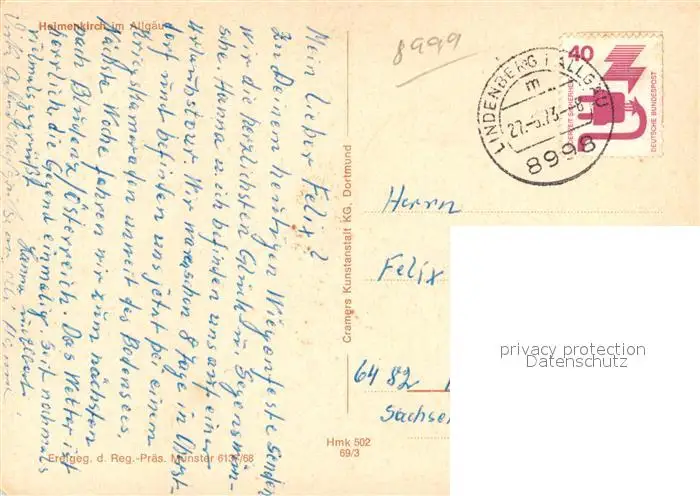 Heimenkirch im Allgäu
Mein lieber Felix!
Zu Deinem heutigen Wiegenfeste senden
wir die herzlichsten Glück u. Segenswün-
sche. Hanna u. ich befinden uns auf einer
Urlaubstour. Wir waren schon 8 Tage in Oberst-
dorf und befinden uns jetzt bei einem
Kriegskameraden unweit des Bodensees.
Nächste Woche fahren wir zum nächsten
nach Bludenz/Österreich. Das Wetter ist
herrlich, die Gegend einmalig. Seit nochmals
vielmals gegrüßt
Hanna
Erdlgeg. d. Reg.-Präs. Münster 6136/68
Cramers Kunstanstalt KG, Dortmund
Hmk 502
69/3
8999
LINDENBERG I ALLGÄU
m
27.-5.73.-8
8998
40
JEDERZEIT SICHERHEIT
DEUTSCHE BUNDESPOST
Herrn
Felix
6482
Sachse
privacy protection
Datenschutz